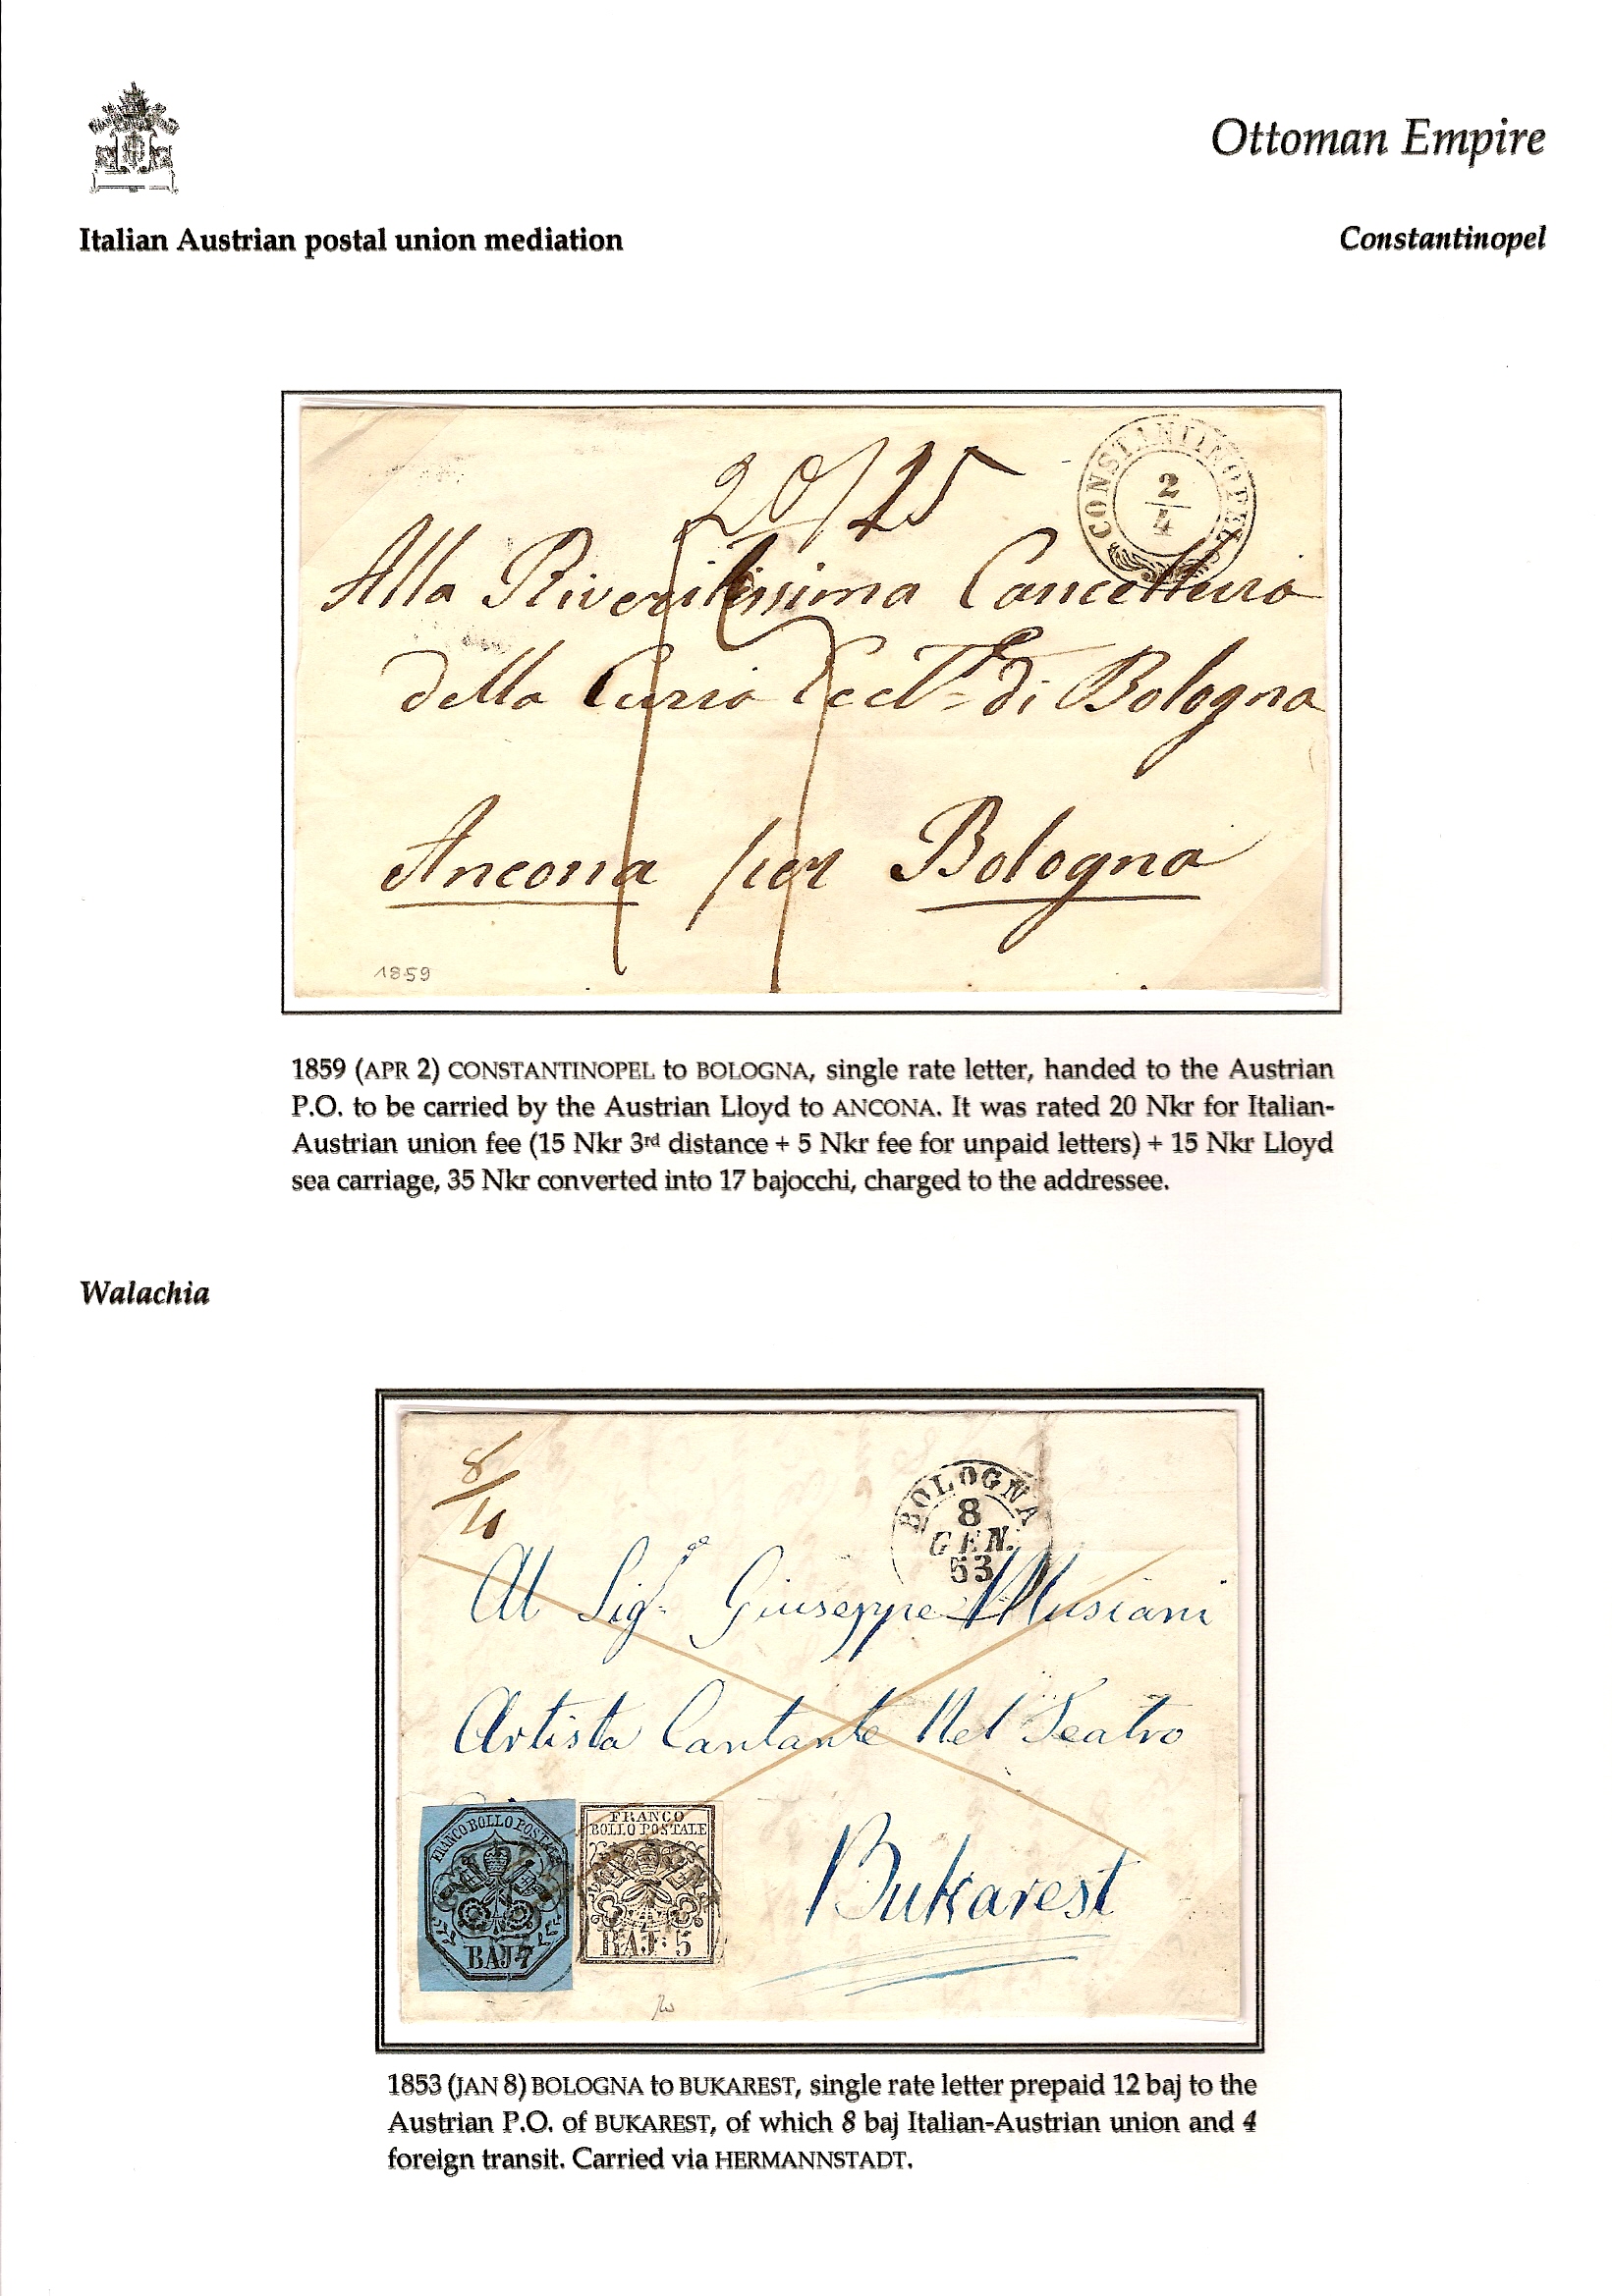 Ottoman Empire
Italian Austrian postal union mediation
Constantinopel
20/15
CONSTANTINOPEL
2
4
Alla Riveritissima Cancelleria
della Curia Eccl.ª di Bologna
Ancona per Bologna
1859
1859 (APR 2) CONSTANTINOPEL to BOLOGNA, single rate letter, handed to the Austrian
P.O. to be carried by the Austrian Lloyd to ANCONA. It was rated 20 Nkr for Italian-
Austrian union fee (15 Nkr 3rd distance + 5 Nkr fee for unpaid letters) + 15 Nkr Lloyd
sea carriage, 35 Nkr converted into 17 bajocchi, charged to the addressee.
Walachia
8
10
BOLOGNA
8
GEN.
53
Al Sig.re Giuseppe Musiani
Artista Cantante Nel Teatro
Bukarest
FRANCO BOLLO POSTALE
BAJ 7
FRANCO
BOLLO POSTALE
BAJ: 5
1853 (JAN 8) BOLOGNA to BUKAREST, single rate letter prepaid 12 baj to the
Austrian P.O. of BUKAREST, of which 8 baj Italian-Austrian union and 4
foreign transit. Carried via HERMANNSTADT.